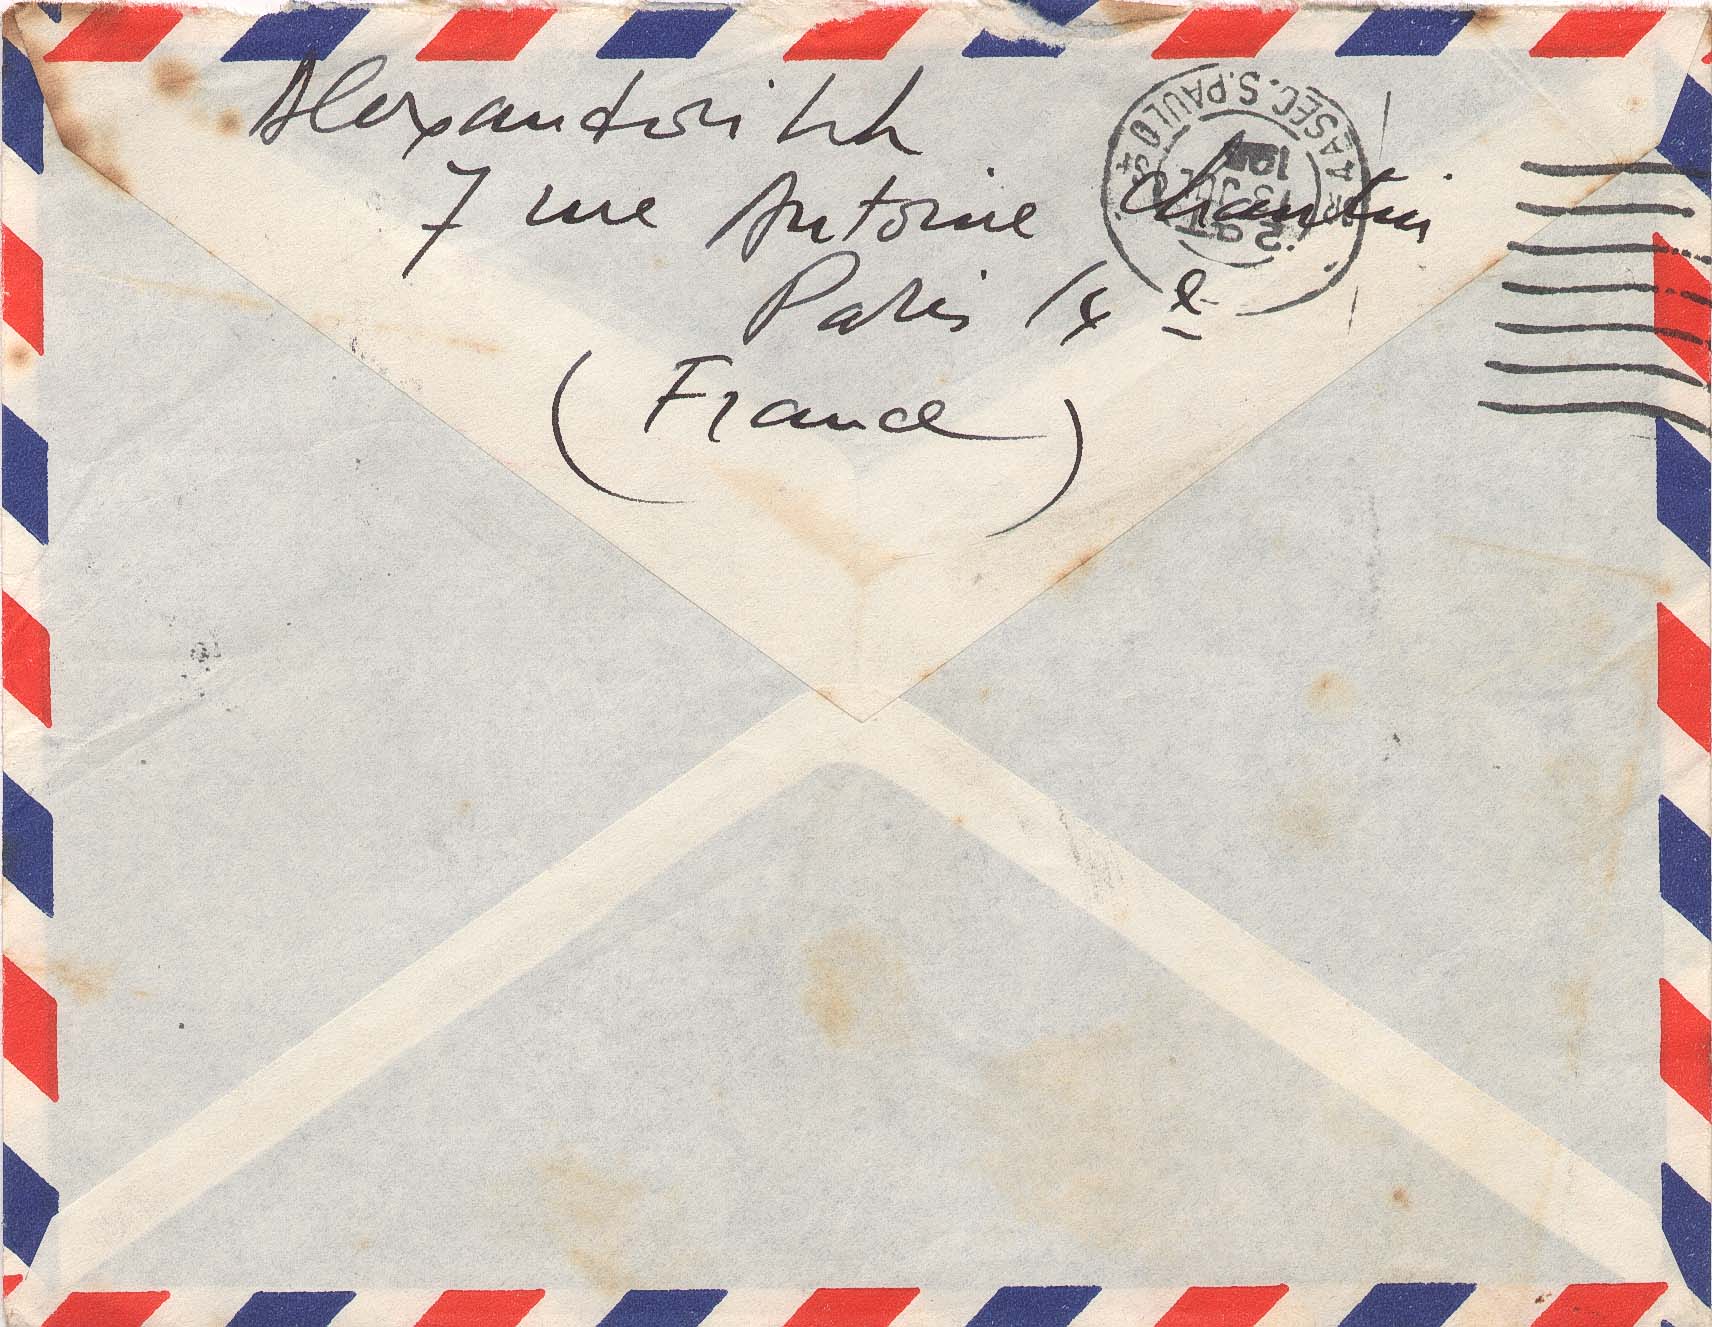 Alexandrovitch
7 rue Antoine Chantin
Paris 14e
(France)
SEC. S. PAULO
JUL